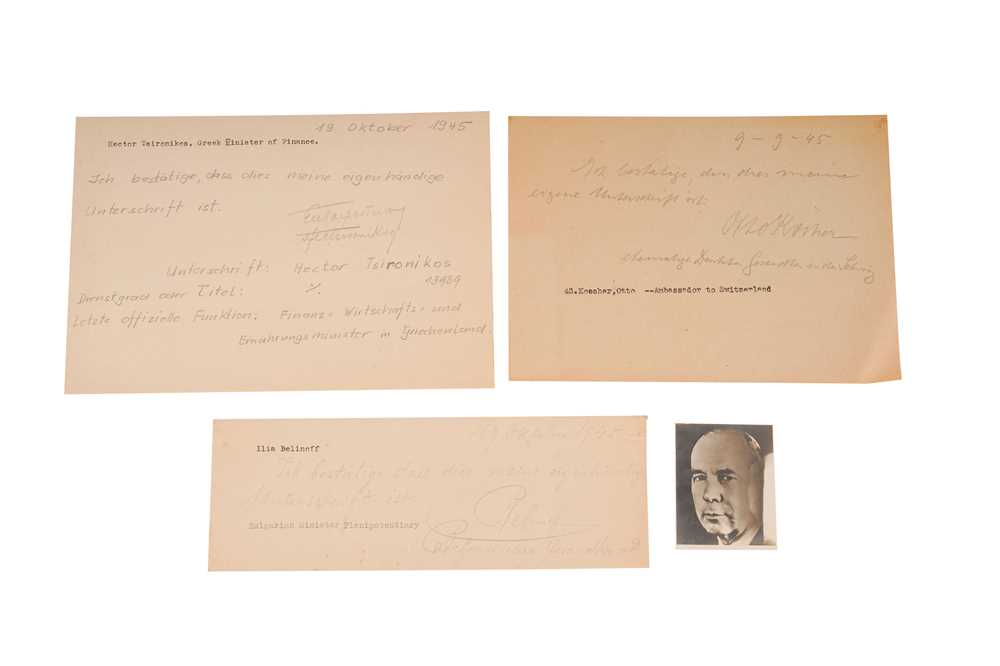 19 Oktober 1945
Hector Tsironikos, Greek Minister of Finance.
Ich bestätige, dass dies meine eigenhändige
Unterschrift ist.
Unterschrift: Hector Tsironikos
13989
Dienstgrad oder Titel: %.
Letzte offizielle Funktion: Finanz-, Wirtschafts- und
Ernährungsminister in Griechenland.
9-9-45
Ich bestätige, dass dies meine
eigene Unterschrift ist:
Otto Köcher
ehemaliger Deutscher Gesandter in der Schweiz
43. Koecher, Otto --Ambassador to Switzerland
19 Oktober 1945
Ilia Belineff
Ich bestätige dass dies meine eigenhändige
Unterschrift ist
Bulgarian Minister Plenipotentiary